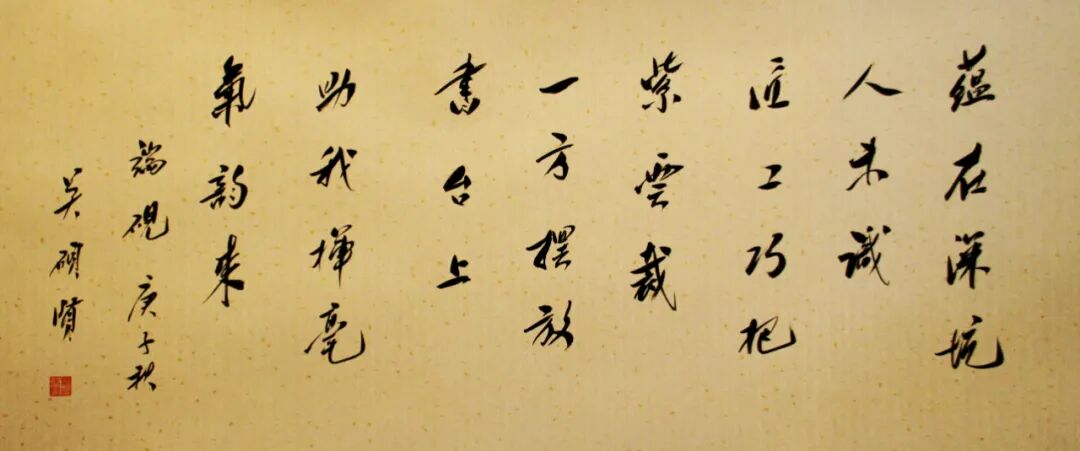 蕴在深坑
人未識
匠工巧把
紫雲裁
一方擺放
書台上
助我揮毫
氣韵来
端硯 庚子秋
吴